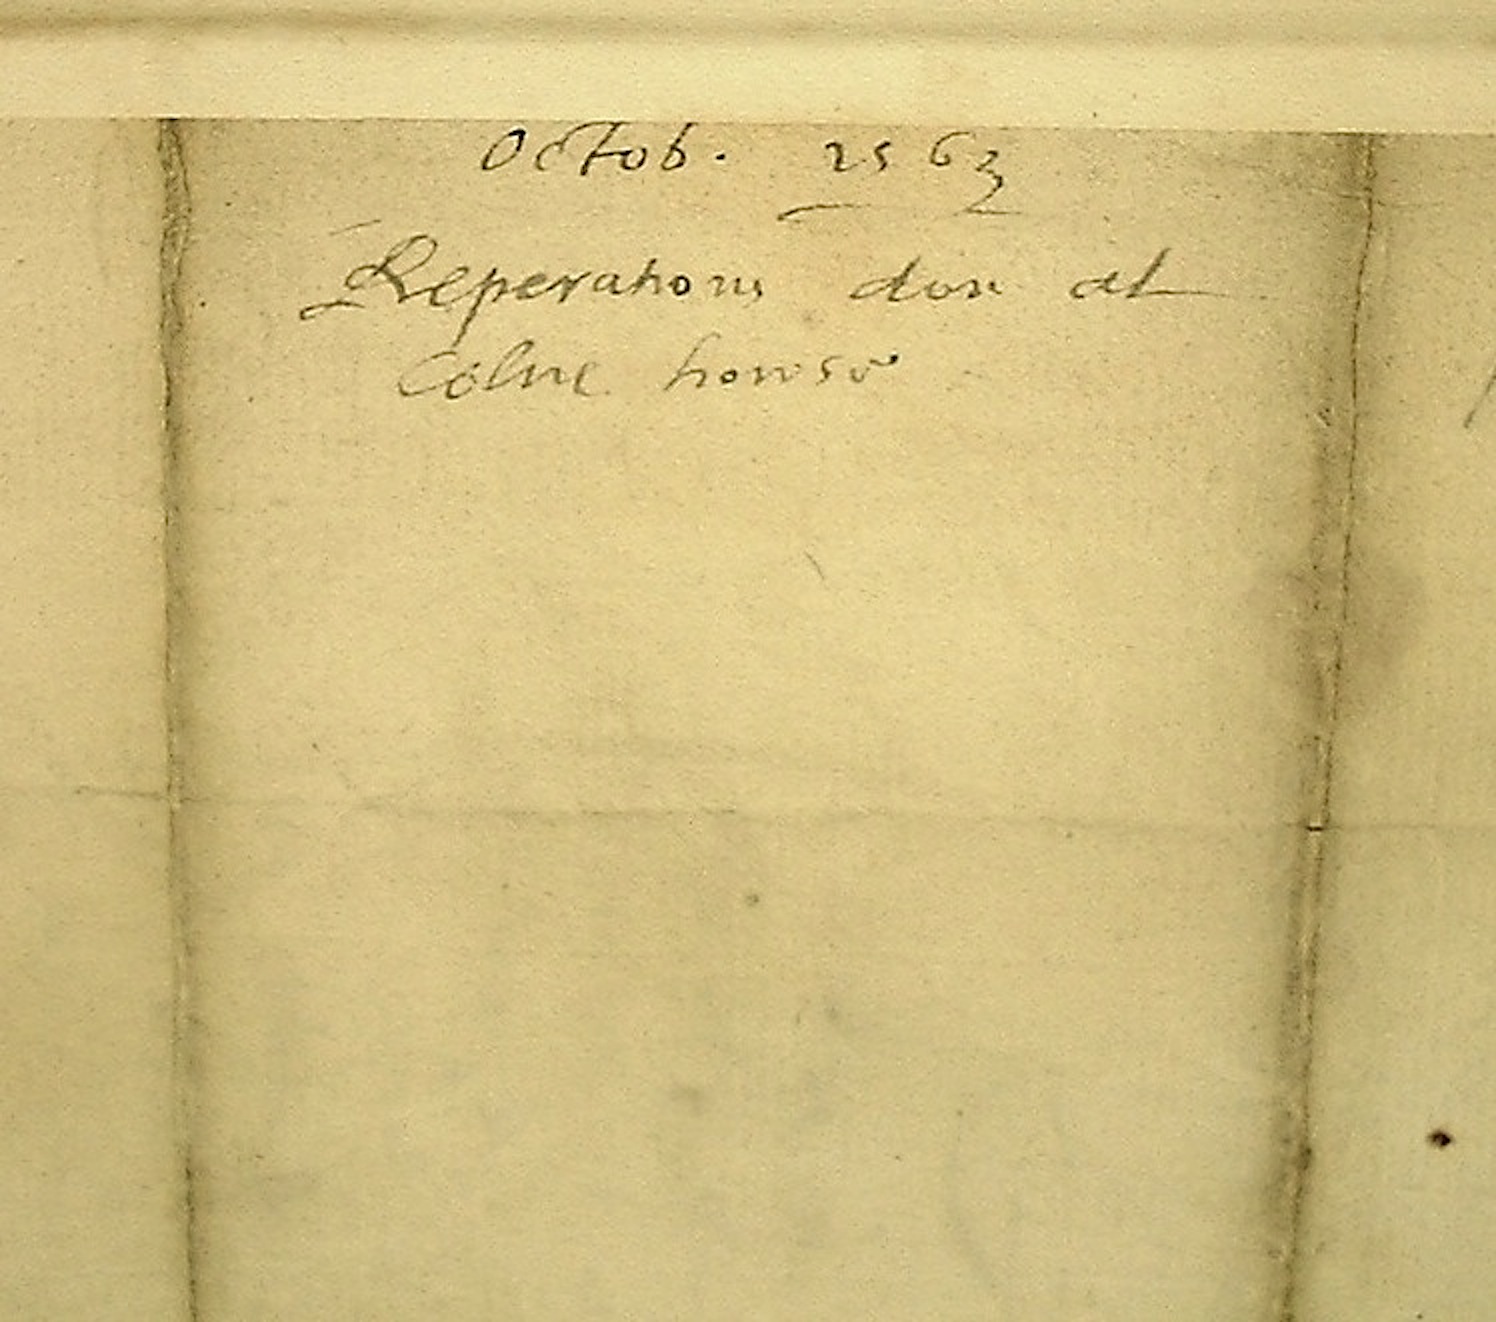 Octob. 1563
Reperations don at
Colne howse